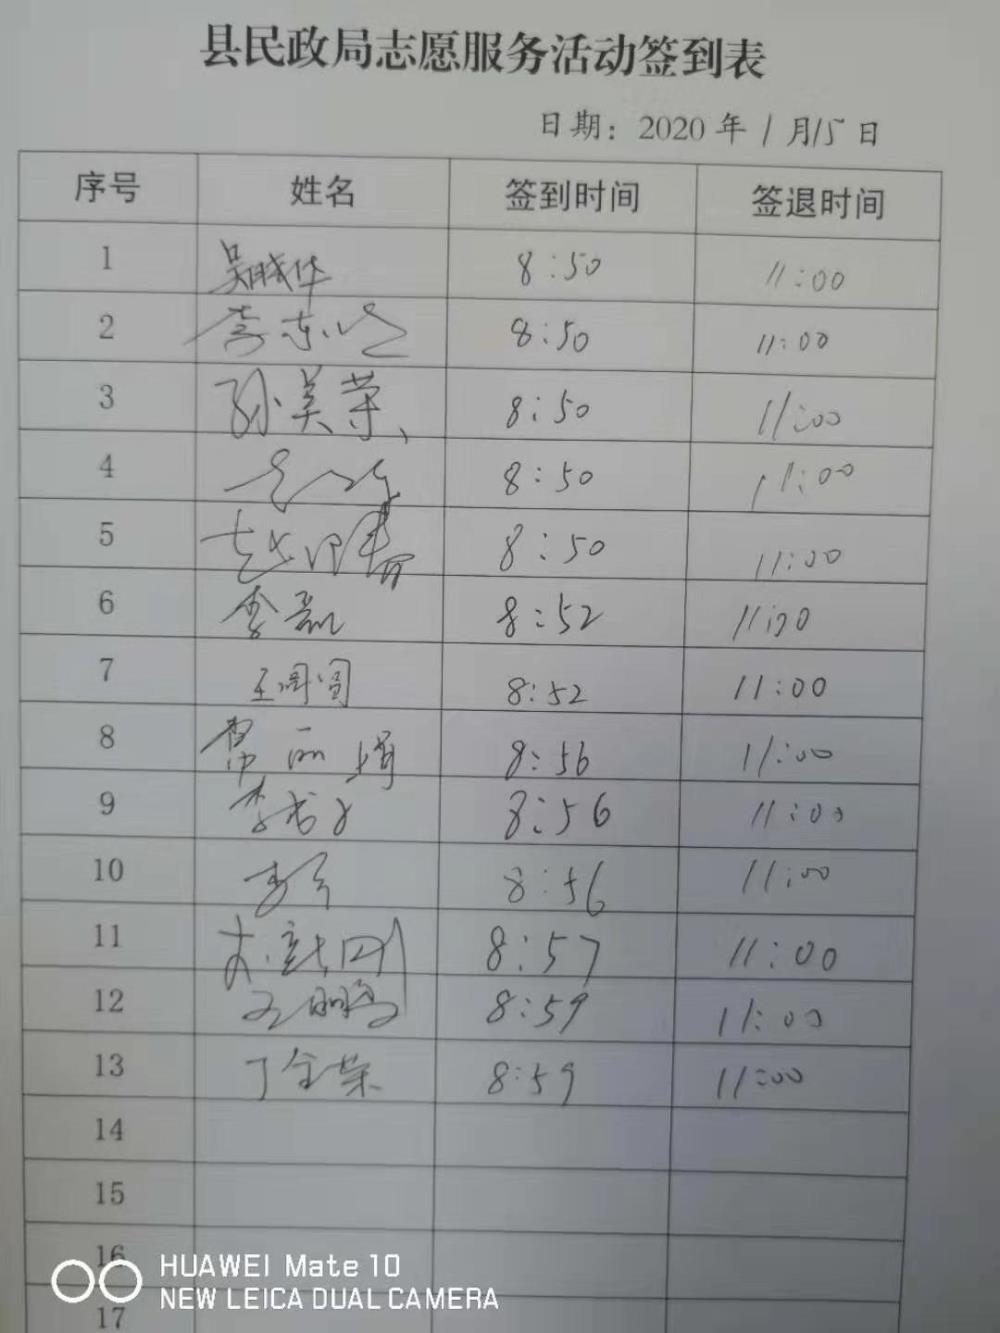 县民政局志愿服务活动签到表
日期：2020年1月15日
序号 姓名 签到时间 签退时间
1 8:50 11:00
2 李 8:50 11:00
3 孙美荣 8:50 11:00
4 8:50 11:00
5 赵 8:50 11:00
6 李磊 8:52 11:00
7 王圆圆 8:52 11:00
8 丽 8:56 11:00
9 李 8:56 11:00
10 李 8:56 11:00
11 刚 8:57 11:00
12 王鹏 8:59 11:00
13 丁金荣 8:59 11:00
14
15
16
17
HUAWEI Mate 10
NEW LEICA DUAL CAMERA